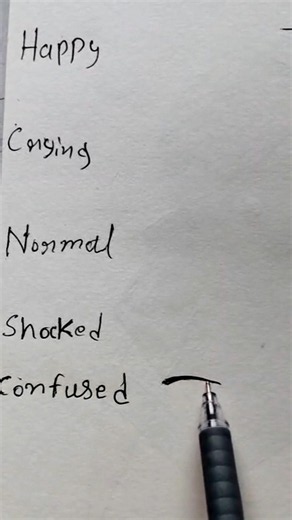 Happy
Crying
Normal
Shocked
Confused